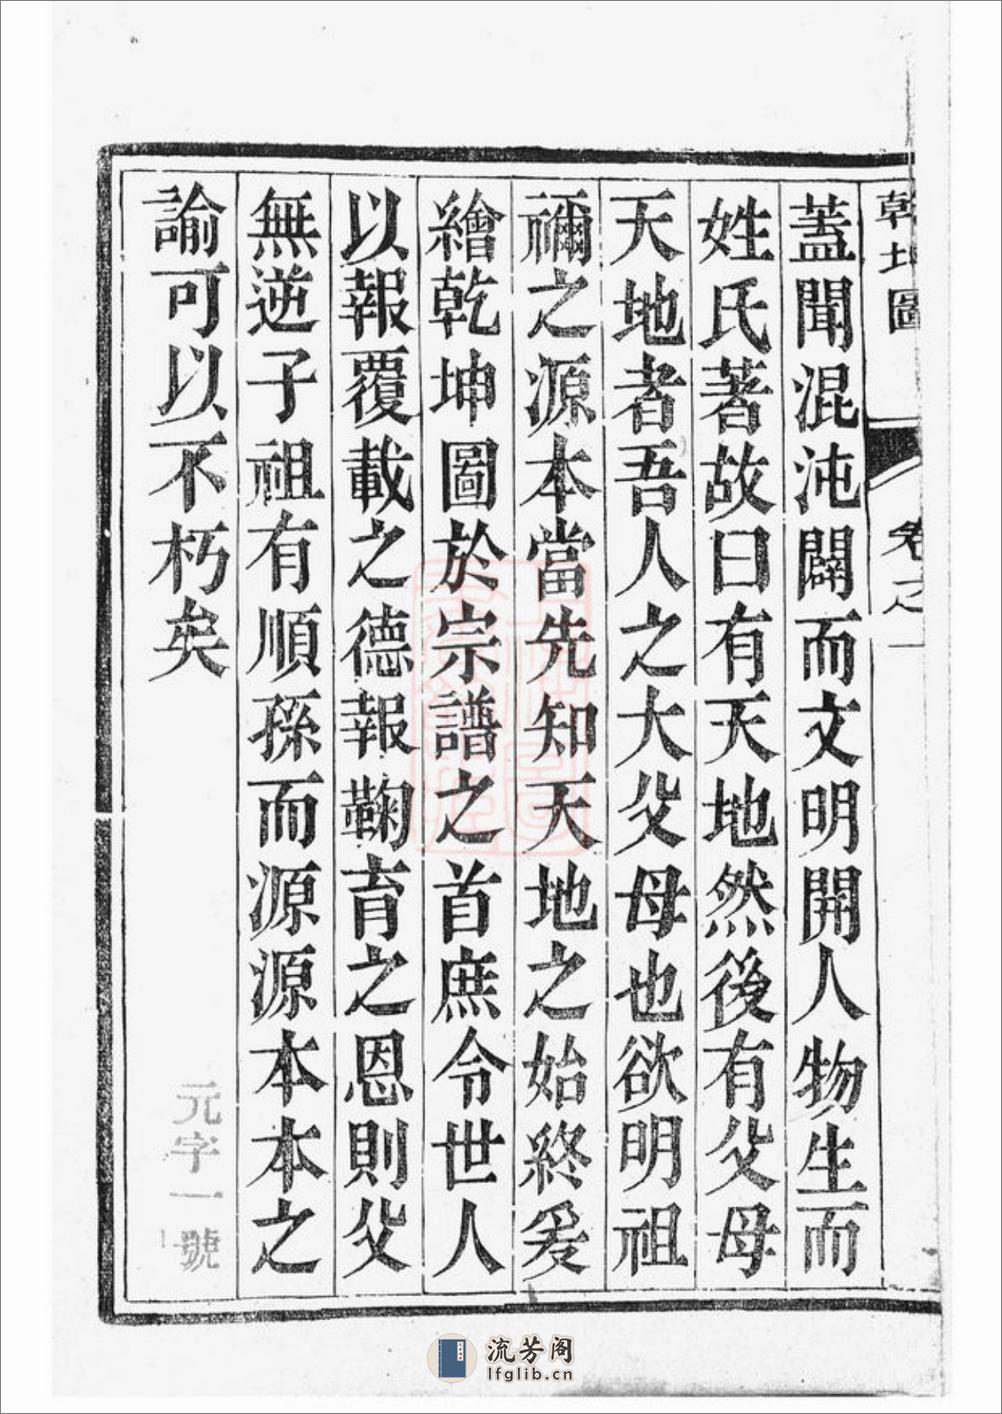 乾坤圖 卷之一
蓋聞混沌闢而文明開人物生而
姓氏著故曰有天地然後有父母
天地者吾人之大父母也欲明祖
禰之源本當先知天地之始終爰
繪乾坤圖於宗譜之首庶令世人
以報覆載之德報鞠育之恩則父
無逆子祖有順孫而源源本本之
諭可以不朽矣
元字一號
流芳阁
lfglib.cn